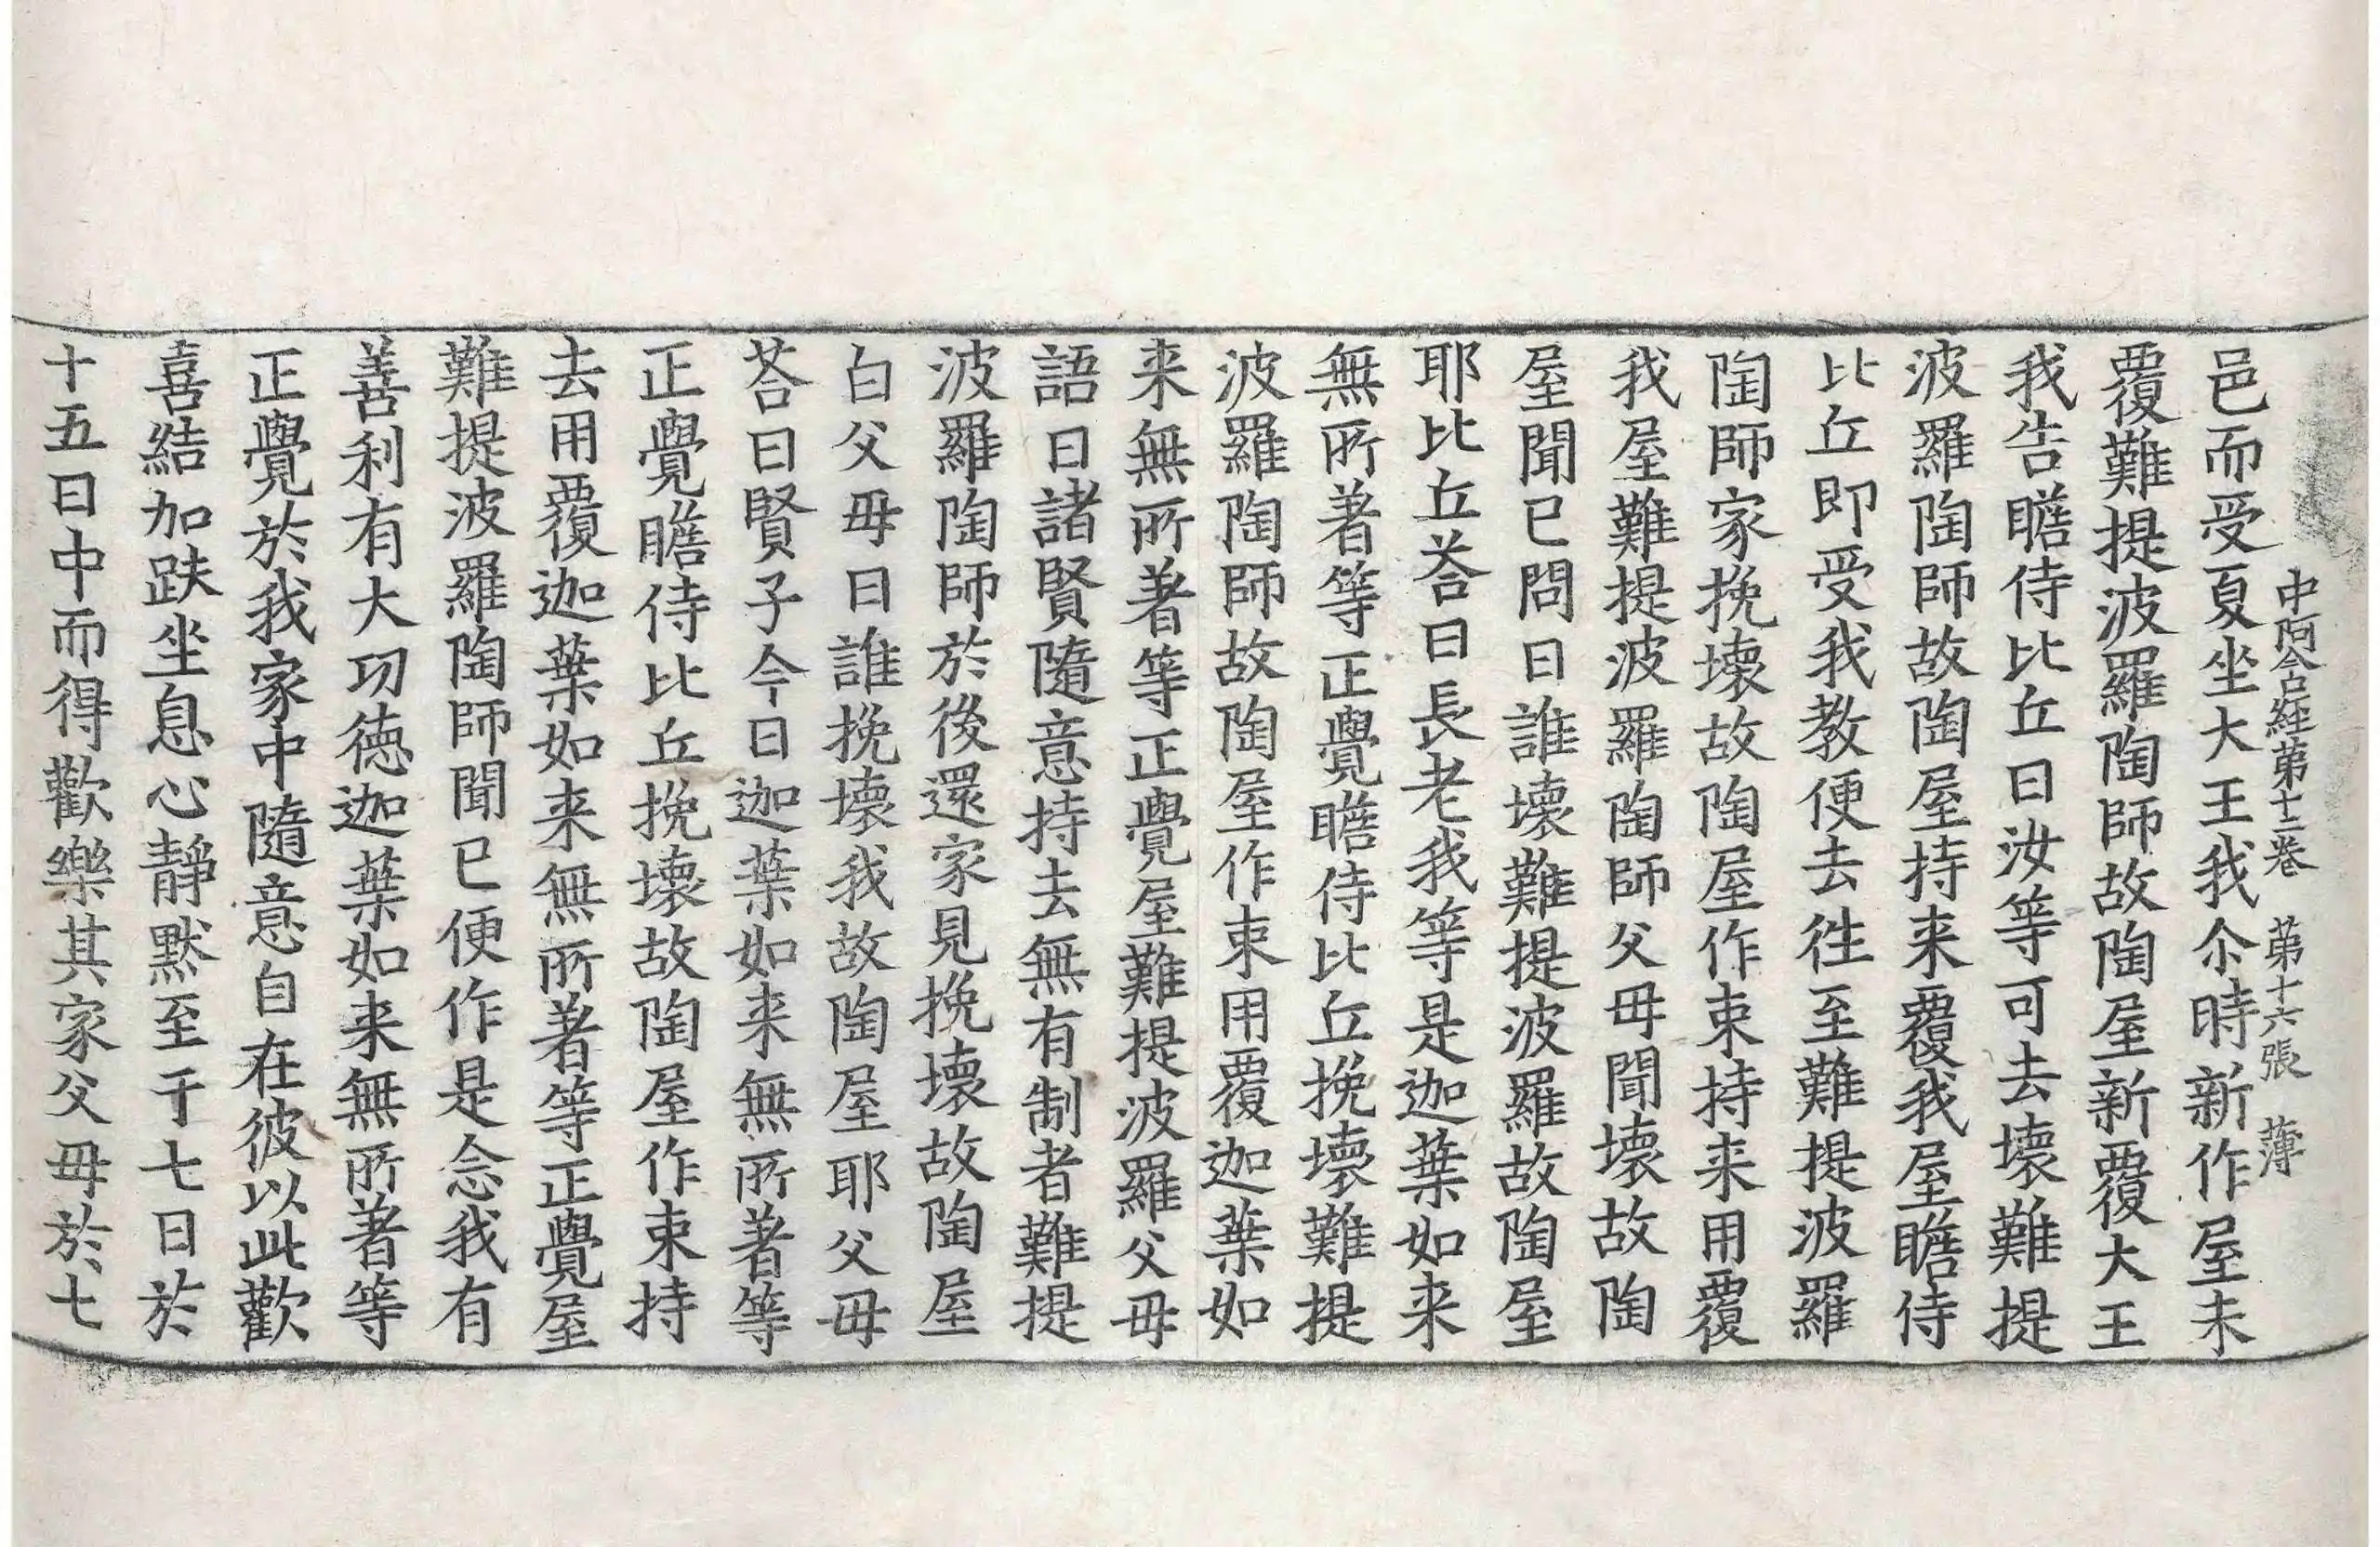 中阿含経第十二卷　第十六張　薄
邑而受夏坐大王我尒時新作屋未
覆難提波羅陶師故陶屋新覆大王
我告瞻侍比丘曰汝等可去壞難提
波羅陶師故陶屋持来覆我屋瞻侍
比丘即受我教便去徃至難提波羅
陶師家挽壞故陶屋作束持来用覆
我屋難提波羅陶師父母聞壞故陶
屋聞已問曰誰壞難提波羅故陶屋
耶比丘荅曰長老我等是迦葉如来
無所著等正覺瞻侍比丘挽壞難提
波羅陶師故陶屋作束用覆迦葉如
来無所著等正覺屋難提波羅父母
語曰諸賢隨意持去無有制者難提
波羅陶師於後還家見挽壞故陶屋
白父母曰誰挽壞我故陶屋耶父母
荅曰賢子今日迦葉如来無所著等
正覺瞻侍比丘挽壞故陶屋作束持
去用覆迦葉如来無所著等正覺屋
難提波羅陶師聞已便作是念我有
善利有大功德迦葉如来無所著等
正覺於我家中隨意自在彼以此歡
喜結加趺坐息心靜默至于七日於
十五日中而得歡樂其家父母於七